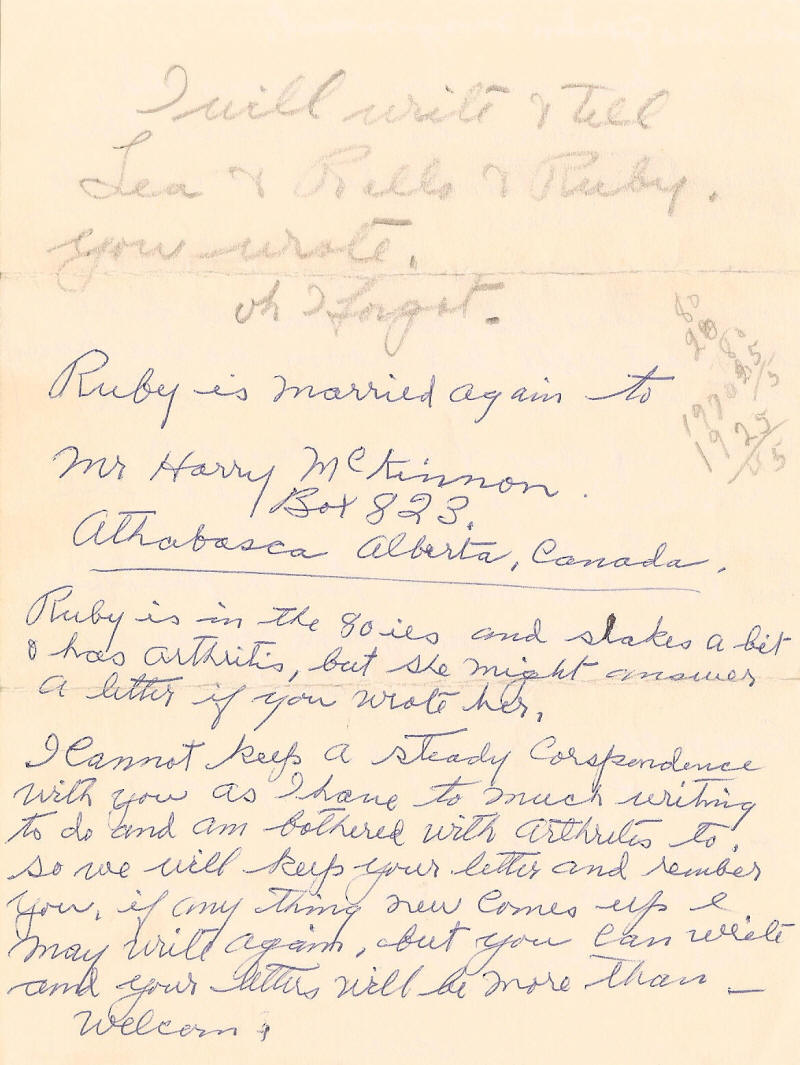 I will write & tell
Lea & Bells & Ruby.
you wrote.
oh I forgot.
80
20
1970
1925
Ruby is married again to
Mr Harry McKinnon.
Box 823.
Athabasca Alberta, Canada.
Ruby is in the 80ies and shakes a bit
& has arthritis, but she might answer
a letter if you wrote her,
I Cannot keep a steady Corspendence
with you as I have to much writing
to do and am bothered with arthrites to.
so we will keep your letter and rember
you, if any thing new Comes up I
may write again, but you Can write
and your letters will be more than _
Welcom.